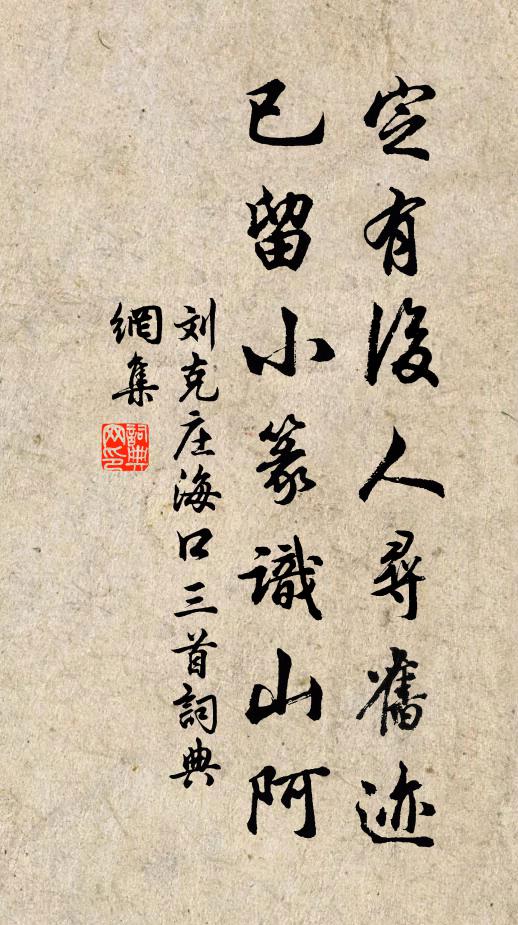 定有後人尋舊迹
已留小篆識山阿
刘克庄海口三首詞典
網集
詞典網印